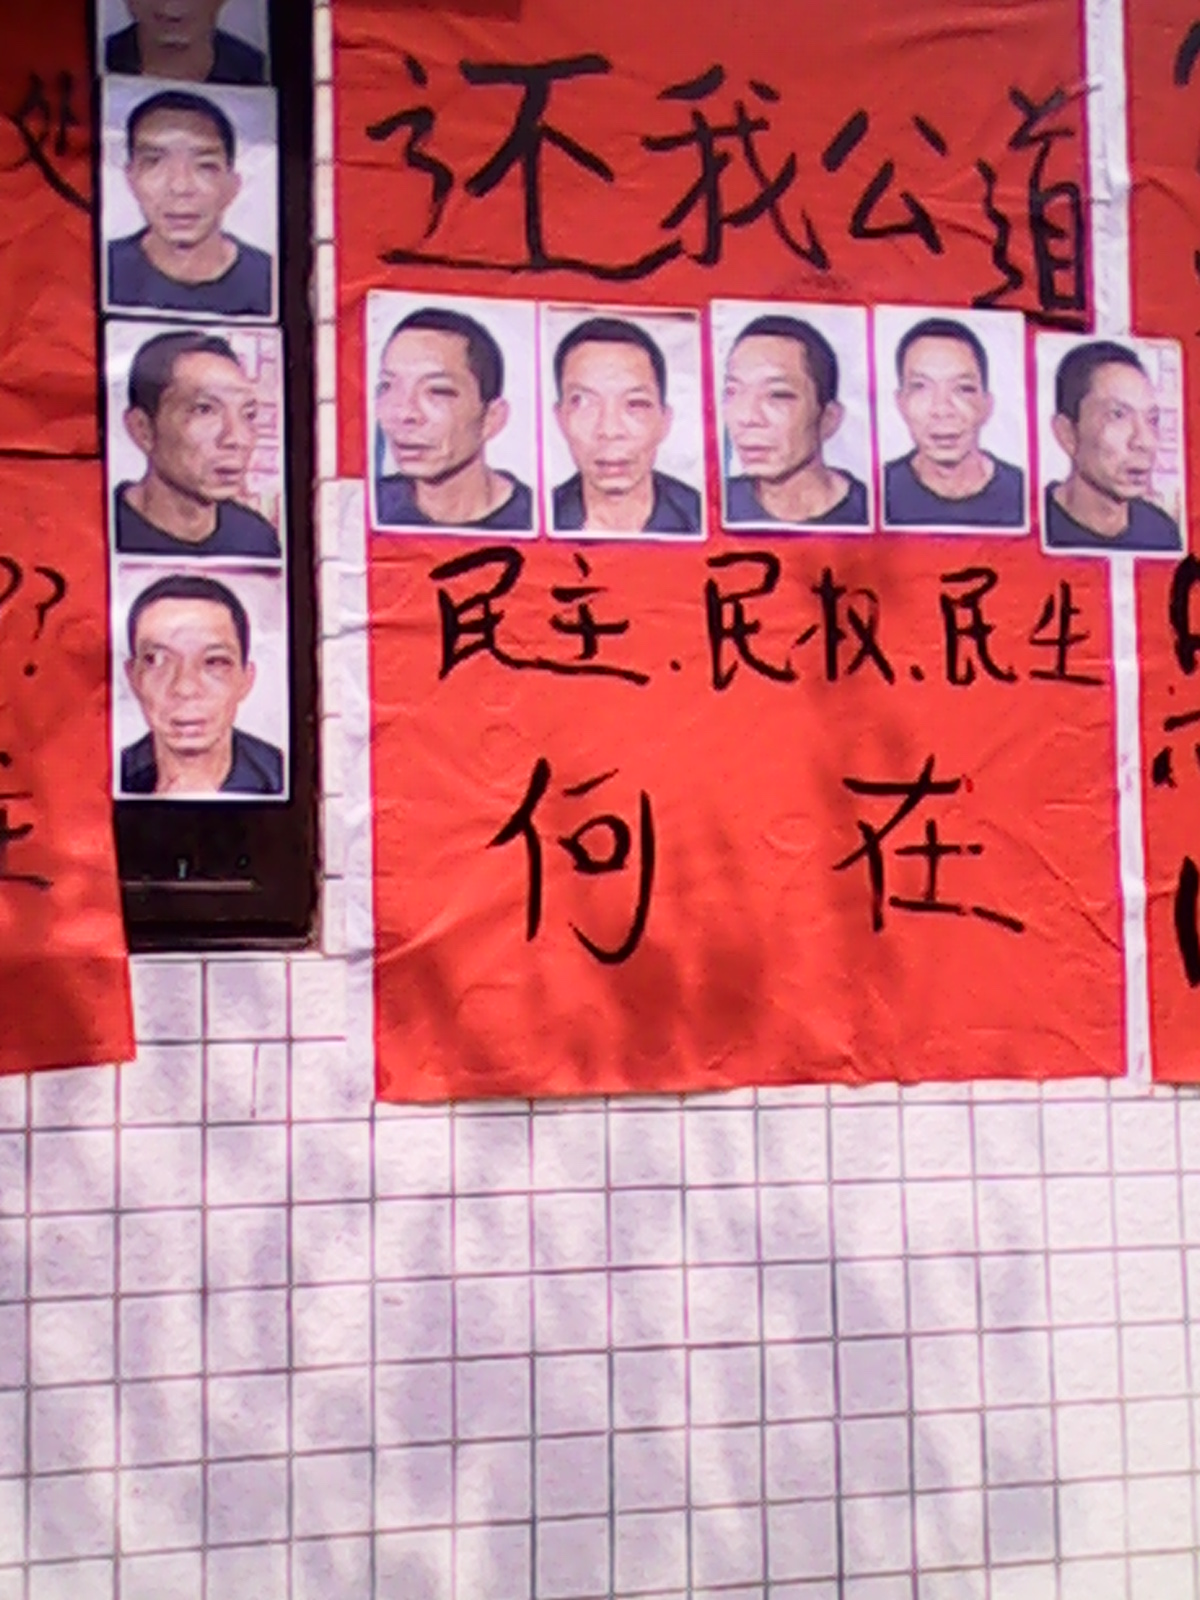 处
??
还我公道
民主.民权.民生
何在